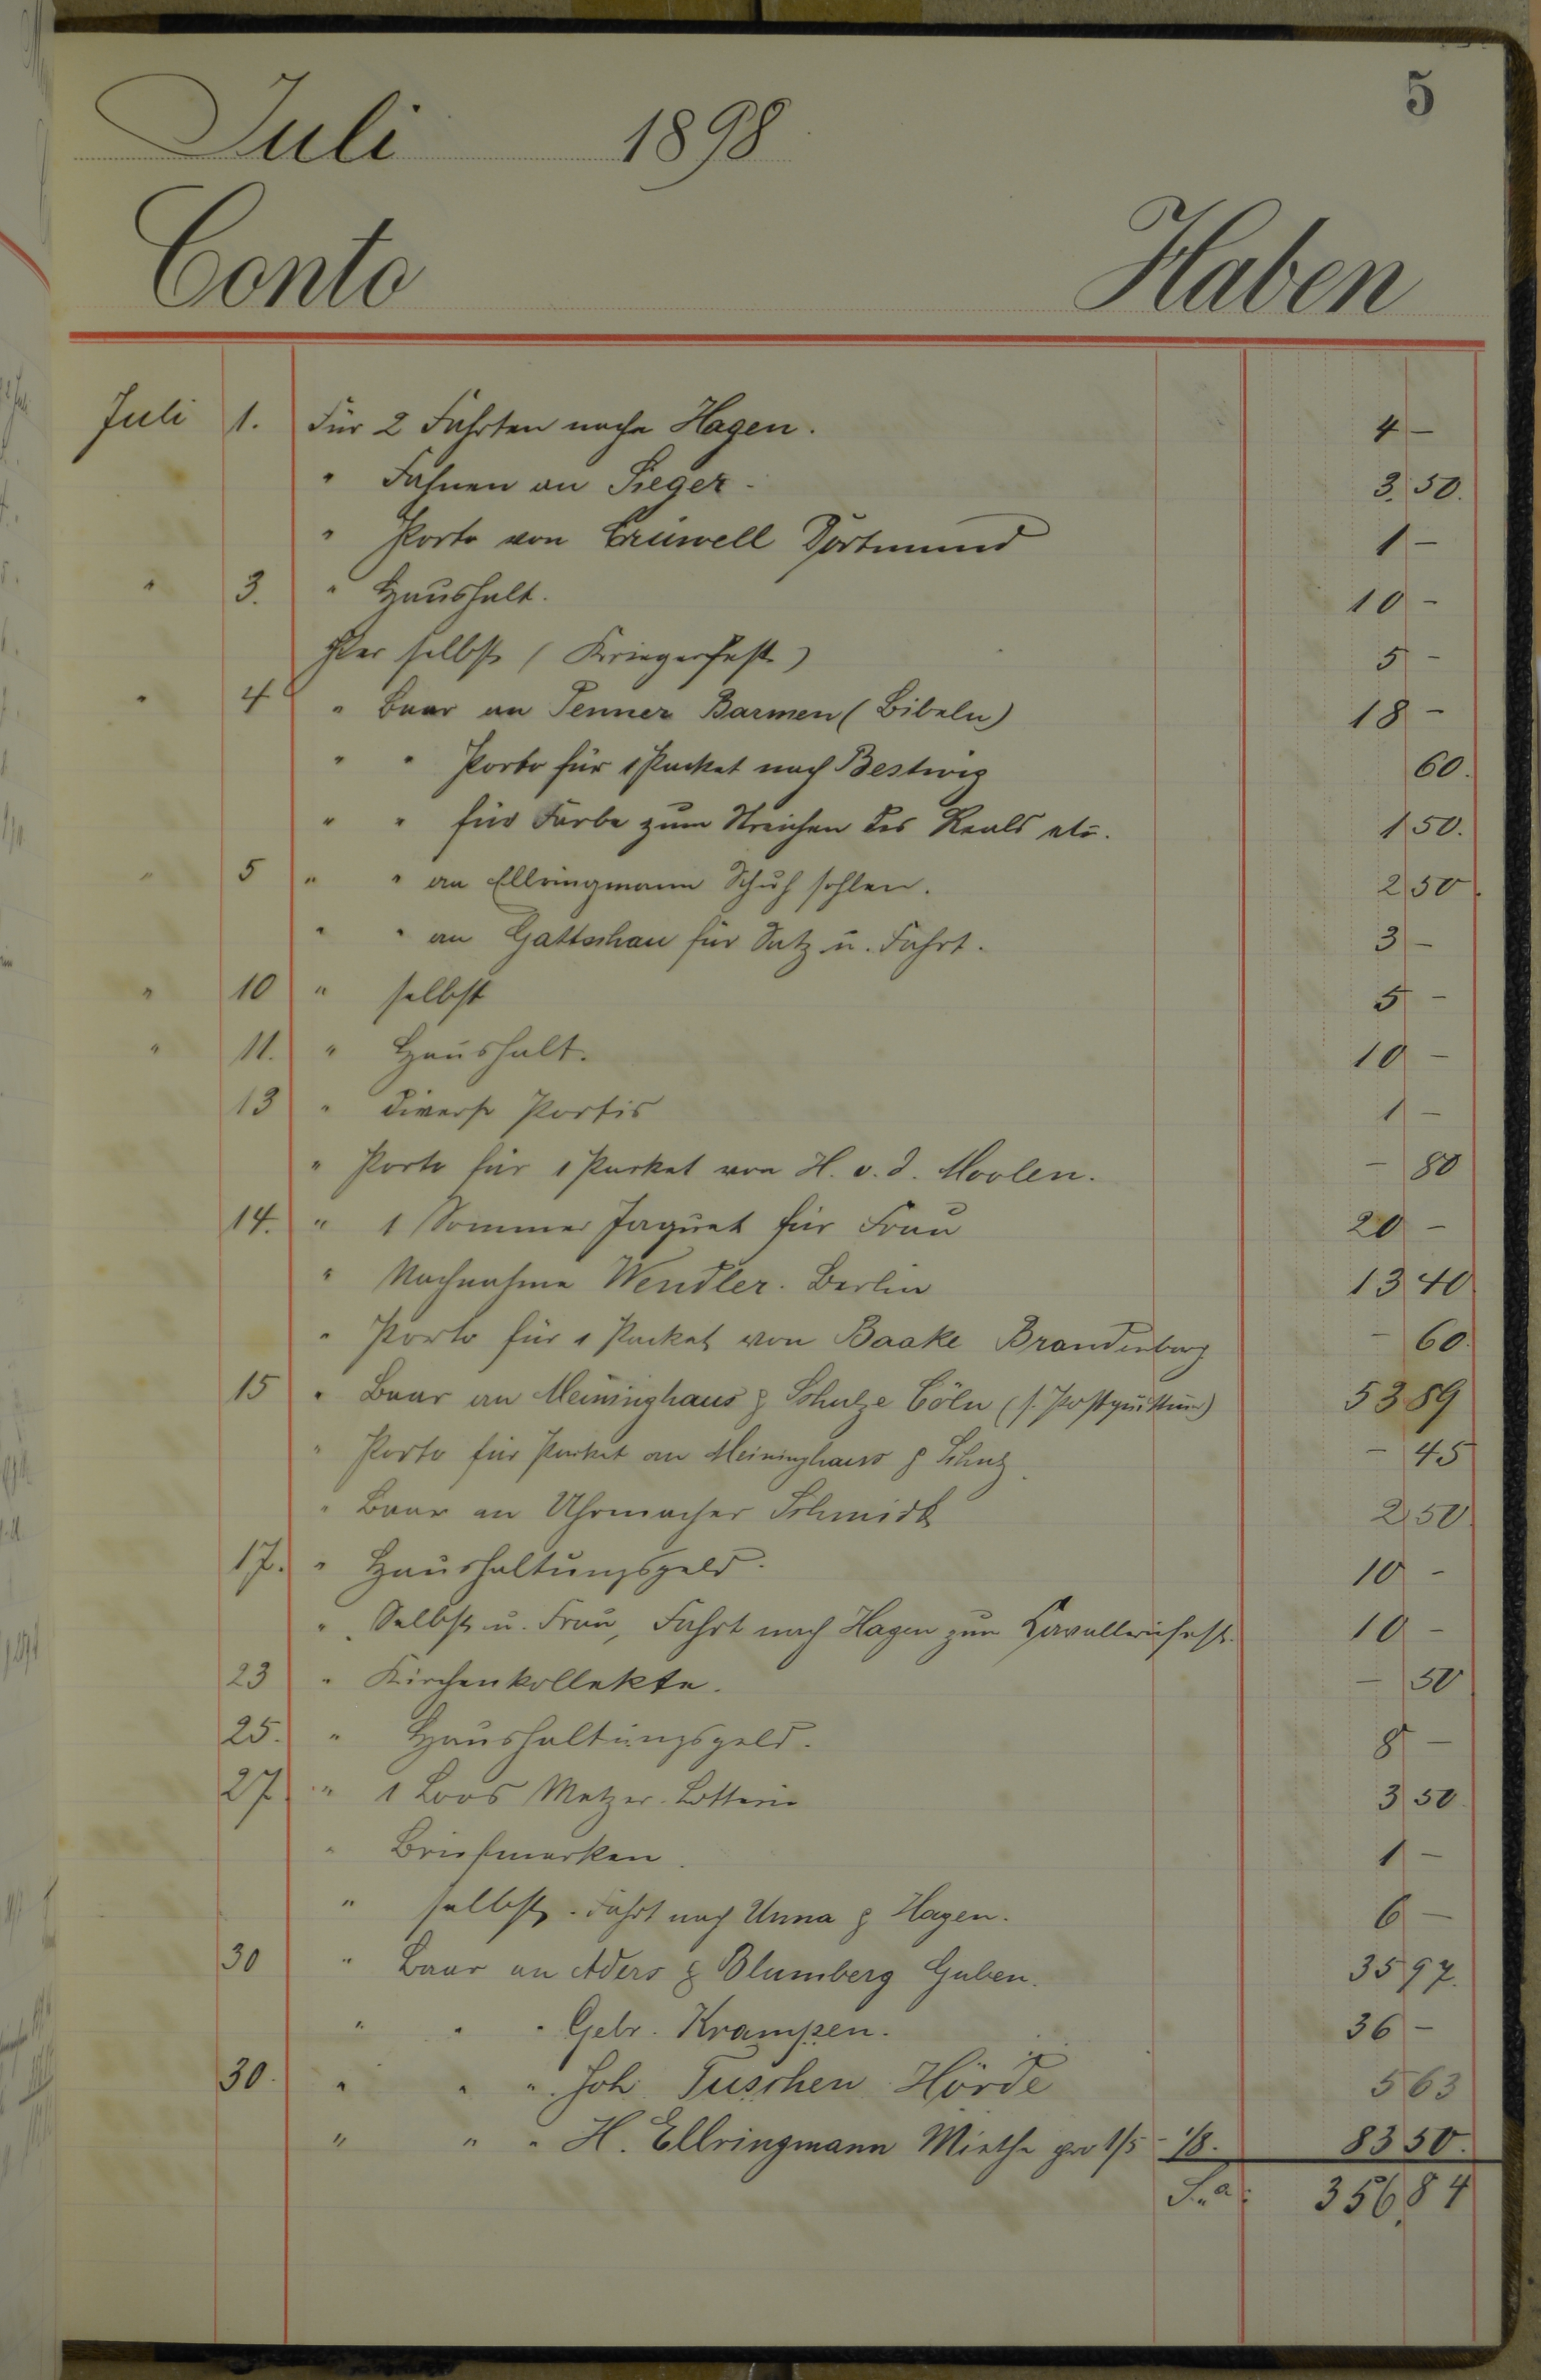 5
Juli 1898
Conto Haben
Juli 1. Für 2 Fahrten nach Hagen. 4 –
" Fahnen an Sieger. 3.50.
" Porto von Crüwell Dortmund 1 –
" 3. " Haushalt. 10 –
selbst (Kriegerfest) 5 –
" 4 " Baar an Penner Barmen (Bibeln) 18 –
" " Porto für 1 Packet nach Bestwig 60.
" " für Farbe zum Streichen des Reals etc. 1 50.
" 5 " " an Ellringmann Schuh sohlen. 2 50.
" " an Gattschau für Satz u. Fahrt. 3 –
" 10 " selbst 5 –
" 11. " Haushalt. 10 –
13 " diverse Portis 1 –
" Porto für 1 Packet von H. v. d. Moolen. – 80
14. " 1 Sommer Jaquet für Frau 20 –
" Nachnahme Wendler. Berlin 13 40
" Porto für 1 Packet von Baake Brandenburg – 60.
15 " Baar an Meininghaus & Schulze Cöln (s. Postquittung) 53 89
" Porto für Packet an Meininghaus & Schulz – 45
" Baar an Uhrmacher Schmidt 2 50
17. " Haushaltungsgeld. 10 –
" Selbst u. Frau, Fahrt nach Hagen zum Kavalleriefest. 10 –
23 " Kirchenkollekte. – 50
25. " Haushaltungsgeld. 8 –
27. " 1 Loos Metzer. Lotterie 3 50.
" Briefmarken. 1 –
" selbst. Fahrt nach Unna & Hagen. 6 –
30 " Baar an Aders & Blumberg Guben. 35 97.
" " " Gebr. Krampen. 36 –
30. " " " Joh. Tuschen Hörde 5 63
" " " H. Ellringmann Miethe pro 1/5 - 1/8. 83 50.
S.a: 356,84